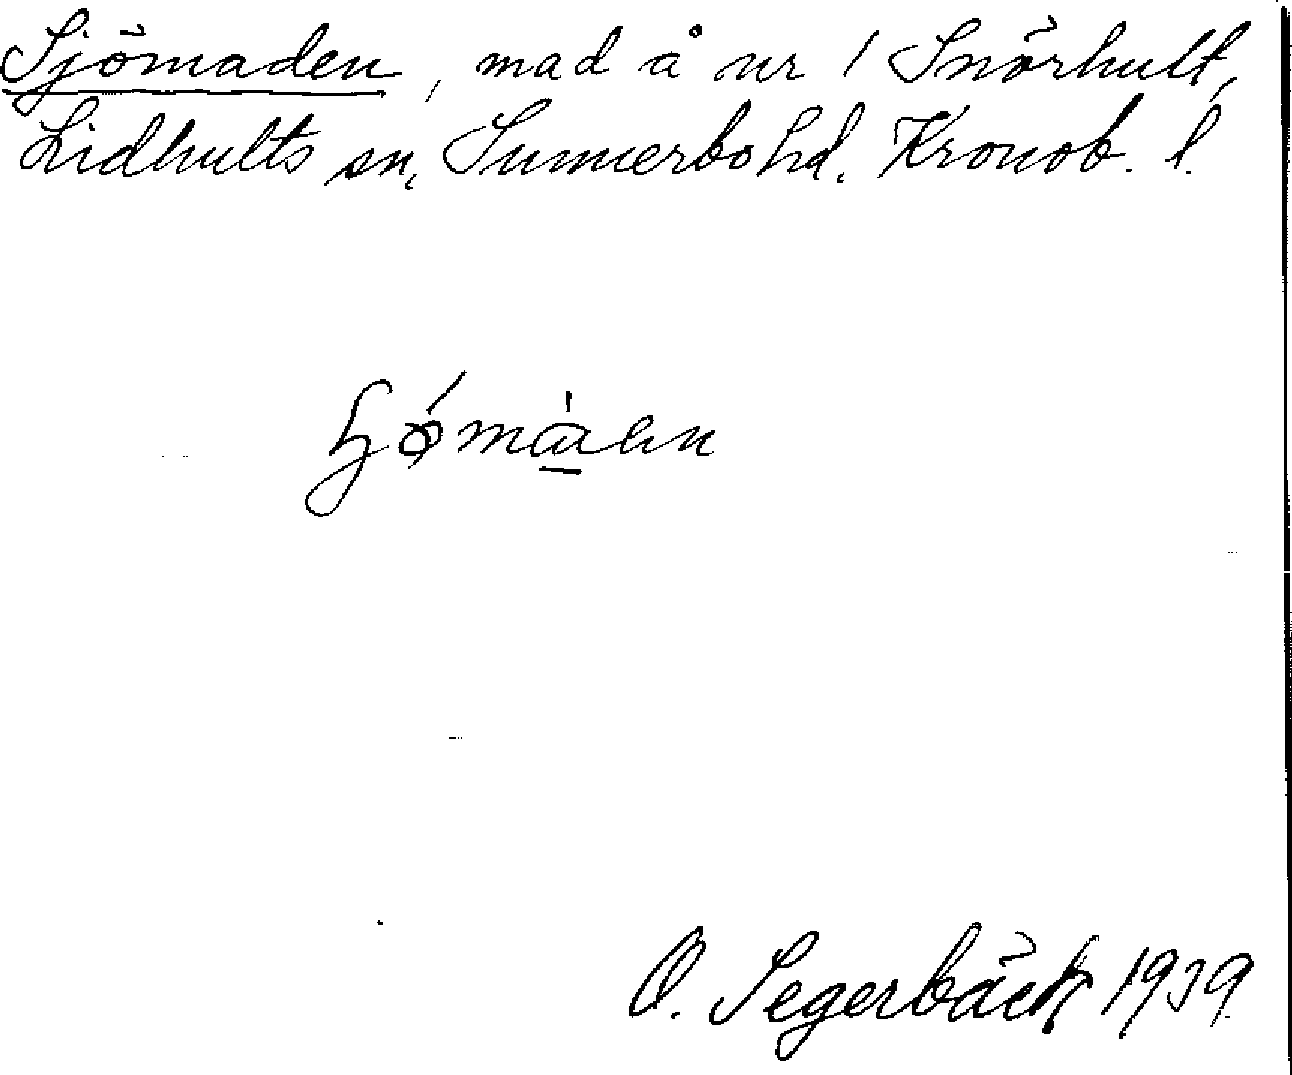 Sjömaden, mad å nr 1 Snörhult,
Lidhults sn, Sunnerbo hd. Kronob. l.
O. Segerbäck 1939